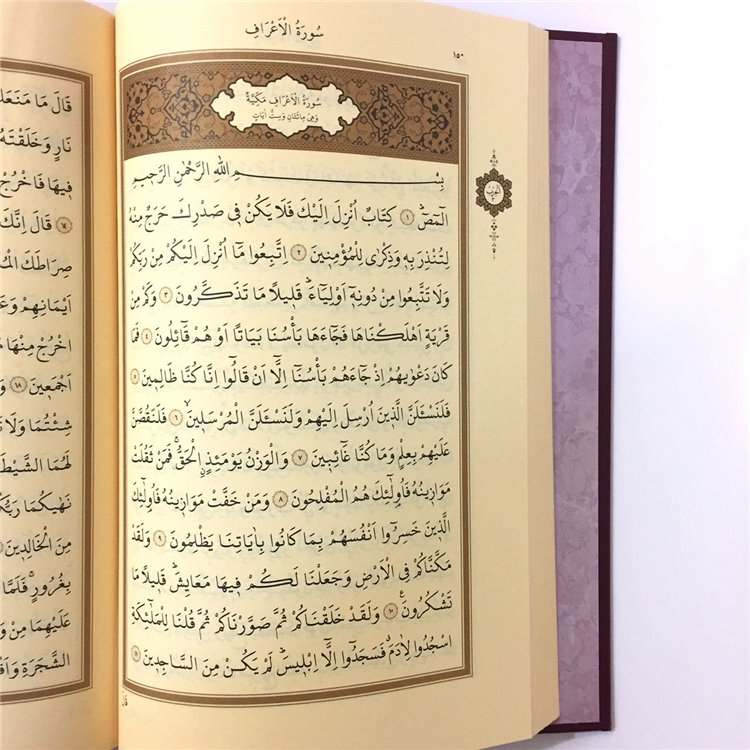 سُورَةُ الْاَعْرَافِ
١٥٠
سُورَةُ الْاَعْرَافِ مَكِّيَّةٌ
وَهِيَ مِائَتَانِ وَسِتُّ اٰيَاتٍ
بِسْمِ اللهِ الرَّحْمٰنِ الرَّحٖيمِ
الٓمٓصٓ ﴿١﴾ كِتَابٌ اُنْزِلَ اِلَيْكَ فَلَا يَكُنْ فٖى صَدْرِكَ حَرَجٌ مِنْهُ
لِتُنْذِرَ بِهٖ وَذِكْرٰى لِلْمُؤْمِنٖينَ ﴿٢﴾ اِتَّبِعُوا مَٓا اُنْزِلَ اِلَيْكُمْ مِنْ رَبِّكُمْ
وَلَا تَتَّبِعُوا مِنْ دُونِهٖٓ اَوْلِيَٓاءَۜ قَلٖيلًا مَا تَذَكَّرُونَ ﴿٣﴾ وَكَمْ مِنْ
قَرْيَةٍ اَهْلَكْنَاهَا فَجَٓاءَهَا بَأْسُنَا بَيَاتًا اَوْ هُمْ قَٓائِلُونَ ﴿٤﴾ فَمَا
كَانَ دَعْوٰيهُمْ اِذْ جَٓاءَهُمْ بَأْسُنَٓا اِلَّٓا اَنْ قَالُٓوا اِنَّا كُنَّا ظَالِمٖينَ ﴿٥﴾
فَلَنَسْـَٔلَنَّ الَّذٖينَ اُرْسِلَ اِلَيْهِمْ وَلَنَسْـَٔلَنَّ الْمُرْسَلٖينَۙ ﴿٦﴾ فَلَنَقُصَّنَّ
عَلَيْهِمْ بِعِلْمٍ وَمَا كُنَّا غَٓائِبٖينَ ﴿٧﴾ وَالْوَزْنُ يَوْمَئِذٍ الْحَقُّۚ فَمَنْ ثَقُلَتْ
مَوَازٖينُهُ فَاُو۬لٰٓئِكَ هُمُ الْمُفْلِحُونَ ﴿٨﴾ وَمَنْ خَفَّتْ مَوَازٖينُهُ فَاُو۬لٰٓئِكَ
الَّذٖينَ خَسِرُٓوا اَنْفُسَهُمْ بِمَا كَانُوا بِاٰيَاتِنَا يَظْلِمُونَ ﴿٩﴾ وَلَقَدْ
مَكَّنَّاكُمْ فِى الْاَرْضِ وَجَعَلْنَا لَكُمْ فٖيهَا مَعَايِشَۜ قَلٖيلًا مَا
تَشْكُرُونَ۟ ﴿١٠﴾ وَلَقَدْ خَلَقْنَاكُمْ ثُمَّ صَوَّرْنَاكُمْ ثُمَّ قُلْنَا لِلْمَلٰٓئِكَةِ
اسْجُدُوا لِاٰدَمَۗ فَسَجَدُٓوا اِلَّٓا اِبْلٖيسَۜ لَمْ يَكُنْ مِنَ السَّاجِدٖينَ ﴿١١﴾
قَالَ مَا مَنَعَكَ
نَارٍ وَخَلَقْتَهُ
فٖيهَا فَاخْرُجْ
﴿١٤﴾ قَالَ اِنَّكَ
صِرَاطَكَ
اَيْمَانِهِمْ وَعَنْ
اخْرُجْ مِنْهَا
اَجْمَعٖينَ ﴿١٨﴾
شِئْتُمَا وَلَا
لَهُمَا الشَّيْطَانُ
نَهٰيكُمَا رَبُّكُمَا
مِنَ الْخَالِدٖينَ
بِغُرُورٍۚ فَلَمَّا
عَلَيْهِمَا مِنْ
الشَّجَرَةِ